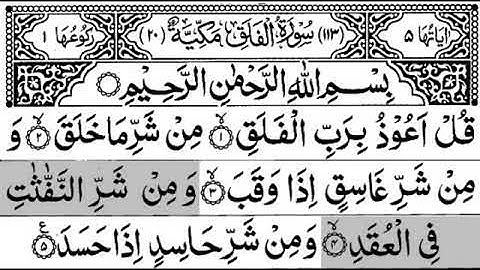 اٰيَاتُهَا ٥ (١١٣) سُوْرَةُ الْفَلَقِ مَكِّيَّةٌ (٢٠) رُكُوْعُهَا ١
بِسْمِ اللّٰهِ الرَّحْمٰنِ الرَّحِيْمِ
قُلْ اَعُوْذُ بِرَبِّ الْفَلَقِ ۙ‏﴿۱﴾ مِنْ شَرِّ مَا خَلَقَ ۙ‏﴿۲﴾ وَ
مِنْ شَرِّ غَاسِقٍ اِذَا وَقَبَ ۙ‏﴿۳﴾ وَ مِنْ شَرِّ النَّفّٰثٰتِ
فِی الْعُقَدِ ۙ‏﴿۴﴾ وَ مِنْ شَرِّ حَاسِدٍ اِذَا حَسَدَ ﴿۵﴾ ع